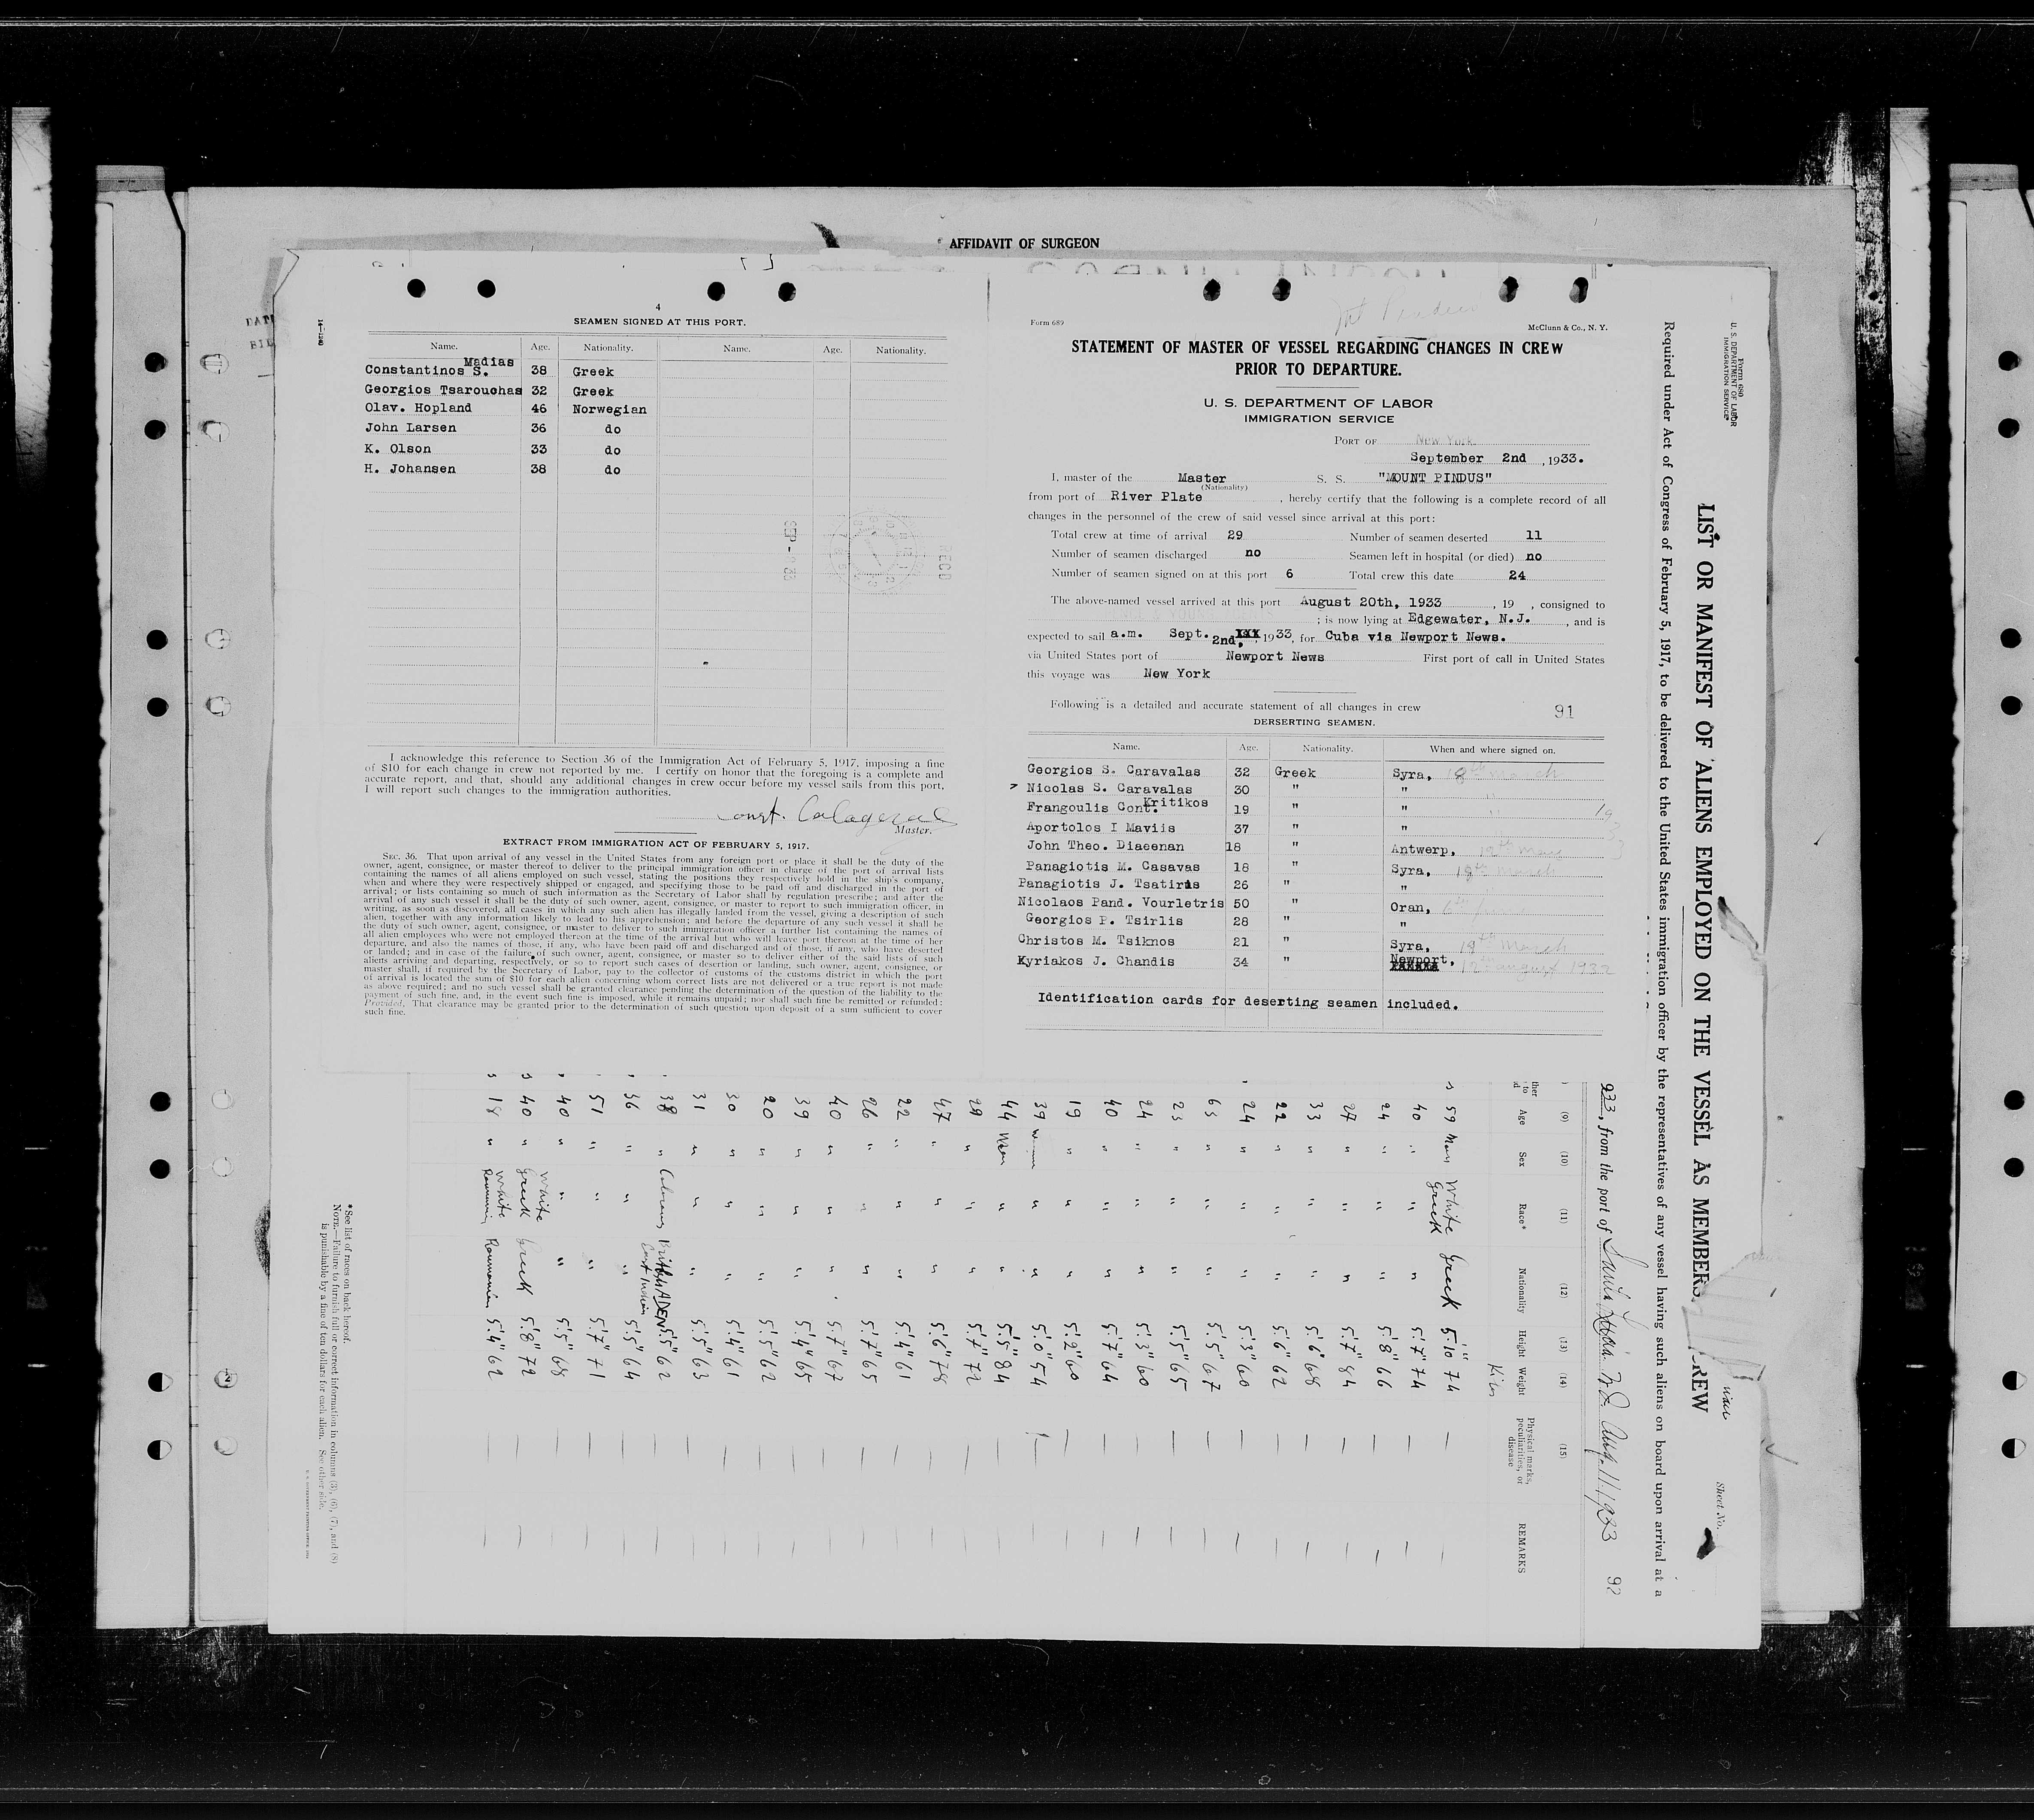 AFFIDAVIT OF SURGEON
4
SEAMEN SIGNED AT THIS PORT.
Name. Age. Nationality. Name. Age. Nationality.
Constantinos S. Madias 38 Greek
Georgios Tsarouchas 32 Greek
Olav. Hopland 46 Norwegian
John Larsen 36 do
K. Olson 33 do
H. Johansen 38 do
I acknowledge this reference to Section 36 of the Immigration Act of February 5, 1917, imposing a fine
of $10 for each change in crew not reported by me. I certify on honor that the foregoing is a complete and
accurate report, and that, should any additional changes in crew occur before my vessel sails from this port,
I will report such changes to the immigration authorities.
Master.
EXTRACT FROM IMMIGRATION ACT OF FEBRUARY 5, 1917.
SEC. 36. That upon arrival of any vessel in the United States from any foreign port or place it shall be the duty of the
owner, agent, consignee, or master thereof to deliver to the principal immigration officer in charge of the port of arrival lists
containing the names of all aliens employed on such vessel, stating the positions they respectively hold in the ship's company,
when and where they were respectively shipped or engaged, and specifying those to be paid off and discharged in the port of
arrival; or lists containing so much of such information as the Secretary of Labor shall by regulation prescribe; and after the
arrival of any such vessel it shall be the duty of such owner, agent, consignee, or master to report to such immigration officer, in
writing, as soon as discovered, all cases in which any such alien has illegally landed from the vessel, giving a description of such
alien, together with any information likely to lead to his apprehension; and before the departure of any such vessel it shall be
the duty of such owner, agent, consignee, or master to deliver to such immigration officer a further list containing the names of
all alien employees who were not employed thereon at the time of the arrival but who will leave port thereon at the time of her
departure, and also the names of those, if any, who have been paid off and discharged and of those, if any, who have deserted
or landed; and in case of the failure of such owner, agent, consignee, or master so to deliver either of the said lists of such
aliens arriving and departing, respectively, or so to report such cases of desertion or landing, such owner, agent, consignee, or
master shall, if required by the Secretary of Labor, pay to the collector of customs of the customs district in which the port
of arrival is located the sum of $10 for each alien concerning whom correct lists are not delivered or a true report is not made
as above required; and no such vessel shall be granted clearance pending the determination of the question of the liability to the
payment of such fine, and, in the event such fine is imposed, while it remains unpaid; nor shall such fine be remitted or refunded:
Provided, That clearance may be granted prior to the determination of such question upon deposit of a sum sufficient to cover
such fine.
Mt Pindus
Form 689 McClunn & Co., N. Y.
STATEMENT OF MASTER OF VESSEL REGARDING CHANGES IN CREW
PRIOR TO DEPARTURE.
U. S. DEPARTMENT OF LABOR
IMMIGRATION SERVICE
PORT OF New York
September 2nd , 1933.
I, master of the Master S. S. "MOUNT PINDUS"
(Nationality)
from port of River Plate , hereby certify that the following is a complete record of all
changes in the personnel of the crew of said vessel since arrival at this port:
Total crew at time of arrival 29 Number of seamen deserted 11
Number of seamen discharged no Seamen left in hospital (or died) no
Number of seamen signed on at this port 6 Total crew this date 24
The above-named vessel arrived at this port August 20th, 1933 , 19 , consigned to
; is now lying at Edgewater, N.J. , and is
expected to sail a.m. Sept. 2nd, 1933, for Cuba via Newport News.
via United States port of Newport News First port of call in United States
this voyage was New York
Following is a detailed and accurate statement of all changes in crew 91
DERSERTING SEAMEN.
Name. Age. Nationality. When and where signed on.
Georgios S. Caravalas 32 Greek Syra, 18th march
Nicolas S. Caravalas 30 " " "
Frangoulis Cont. Kritikos 19 " " "
Aportolos I Maviis 37 " "
John Theo. Diaeenan 18 " Antwerp,
Panagiotis M. Casavas 18 " Syra, 18th march
Panagiotis J. Tsatiris 26 " "
Nicolaos Pand. Vourletris 50 " Oran,
Georgios P. Tsirlis 28 " "
Christos M. Tsiknos 21 " Syra, 18th march
Kyriakos J. Chandis 34 " Newport, 12th august 1932
Identification cards for deserting seamen included.
Form 680
U. S. DEPARTMENT OF LABOR
IMMIGRATION SERVICE
Sheet No.
LIST OR MANIFEST OF ALIENS EMPLOYED ON THE VESSEL AS MEMBERS CREW
Required under Act of Congress of February 5, 1917, to be delivered to the United States immigration officer by the representatives of any vessel having such aliens on board upon arrival at a
933, from the port of Aug. 11. 1933 92
(9) (10) (11) (12) (13) (14) (15)
Age Sex Race* Nationality Height Weight Physical marks, peculiarities, or disease REMARKS
Kilos
59 Man White Greek Greek 5'.10" 74
40 " " " 5'.7" 74
24 " " " 5'.8" 66
27 " " " 5'.7" 84
33 " " " 5'.6" 68
22 " " " 5'.6" 62
24 " " " 5'.3" 60
63 " " " 5'.5" 67
23 " " " 5'.5" 65
24 " " " 5'.3" 60
40 " " " 5'.7" 64
19 " " " 5'.2" 60
39 " " 5'.0" 54
44 Man " " 5'.5" 84
29 " " " 5'.7" 72
47 " " " 5'.6" 78
22 " " " 5'.4" 61
26 " " " 5'.7" 65
40 " " " 5'.7" 67
39 " " " 5'.4" 65
20 " " " 5'.5" 62
30 " " " 5'.4" 61
31 " " " 5'.5" 63
38 " British ADEN East Indian 5'.5" 62
36 " " " 5'.5" 64
51 " " " 5'.7" 71
40 " " " 5'.5" 68
40 " White Greek Greek 5'.8" 72
18 " White Roumanian 5'.4" 62
*See list of races on back hereof.
NOTE.—Failure to furnish full or correct information in columns (3), (6), (7), and (8)
is punishable by a fine of ten dollars for each alien. See other side.